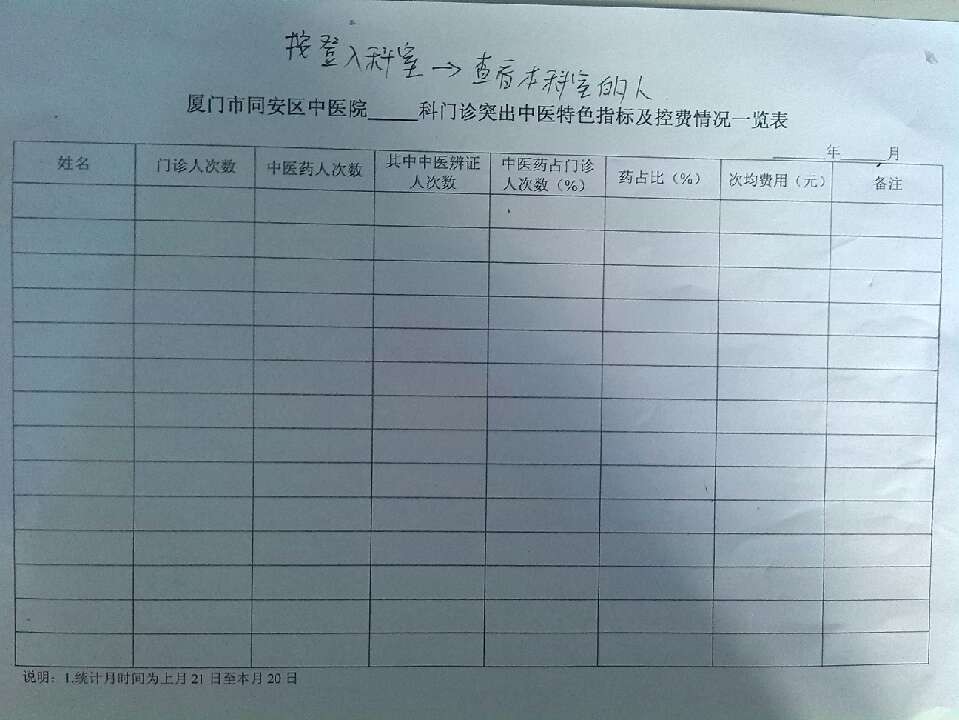 按登入科室→查看本科室的人
厦门市同安区中医院_____科门诊突出中医特色指标及控费情况一览表
______年______月
姓名 门诊人次数 中医药人次数 其中中医辨证人次数 中医药占门诊人次数(%) 药占比(%) 次均费用(元) 备注
说明:1.统计月时间为上月21日至本月20日